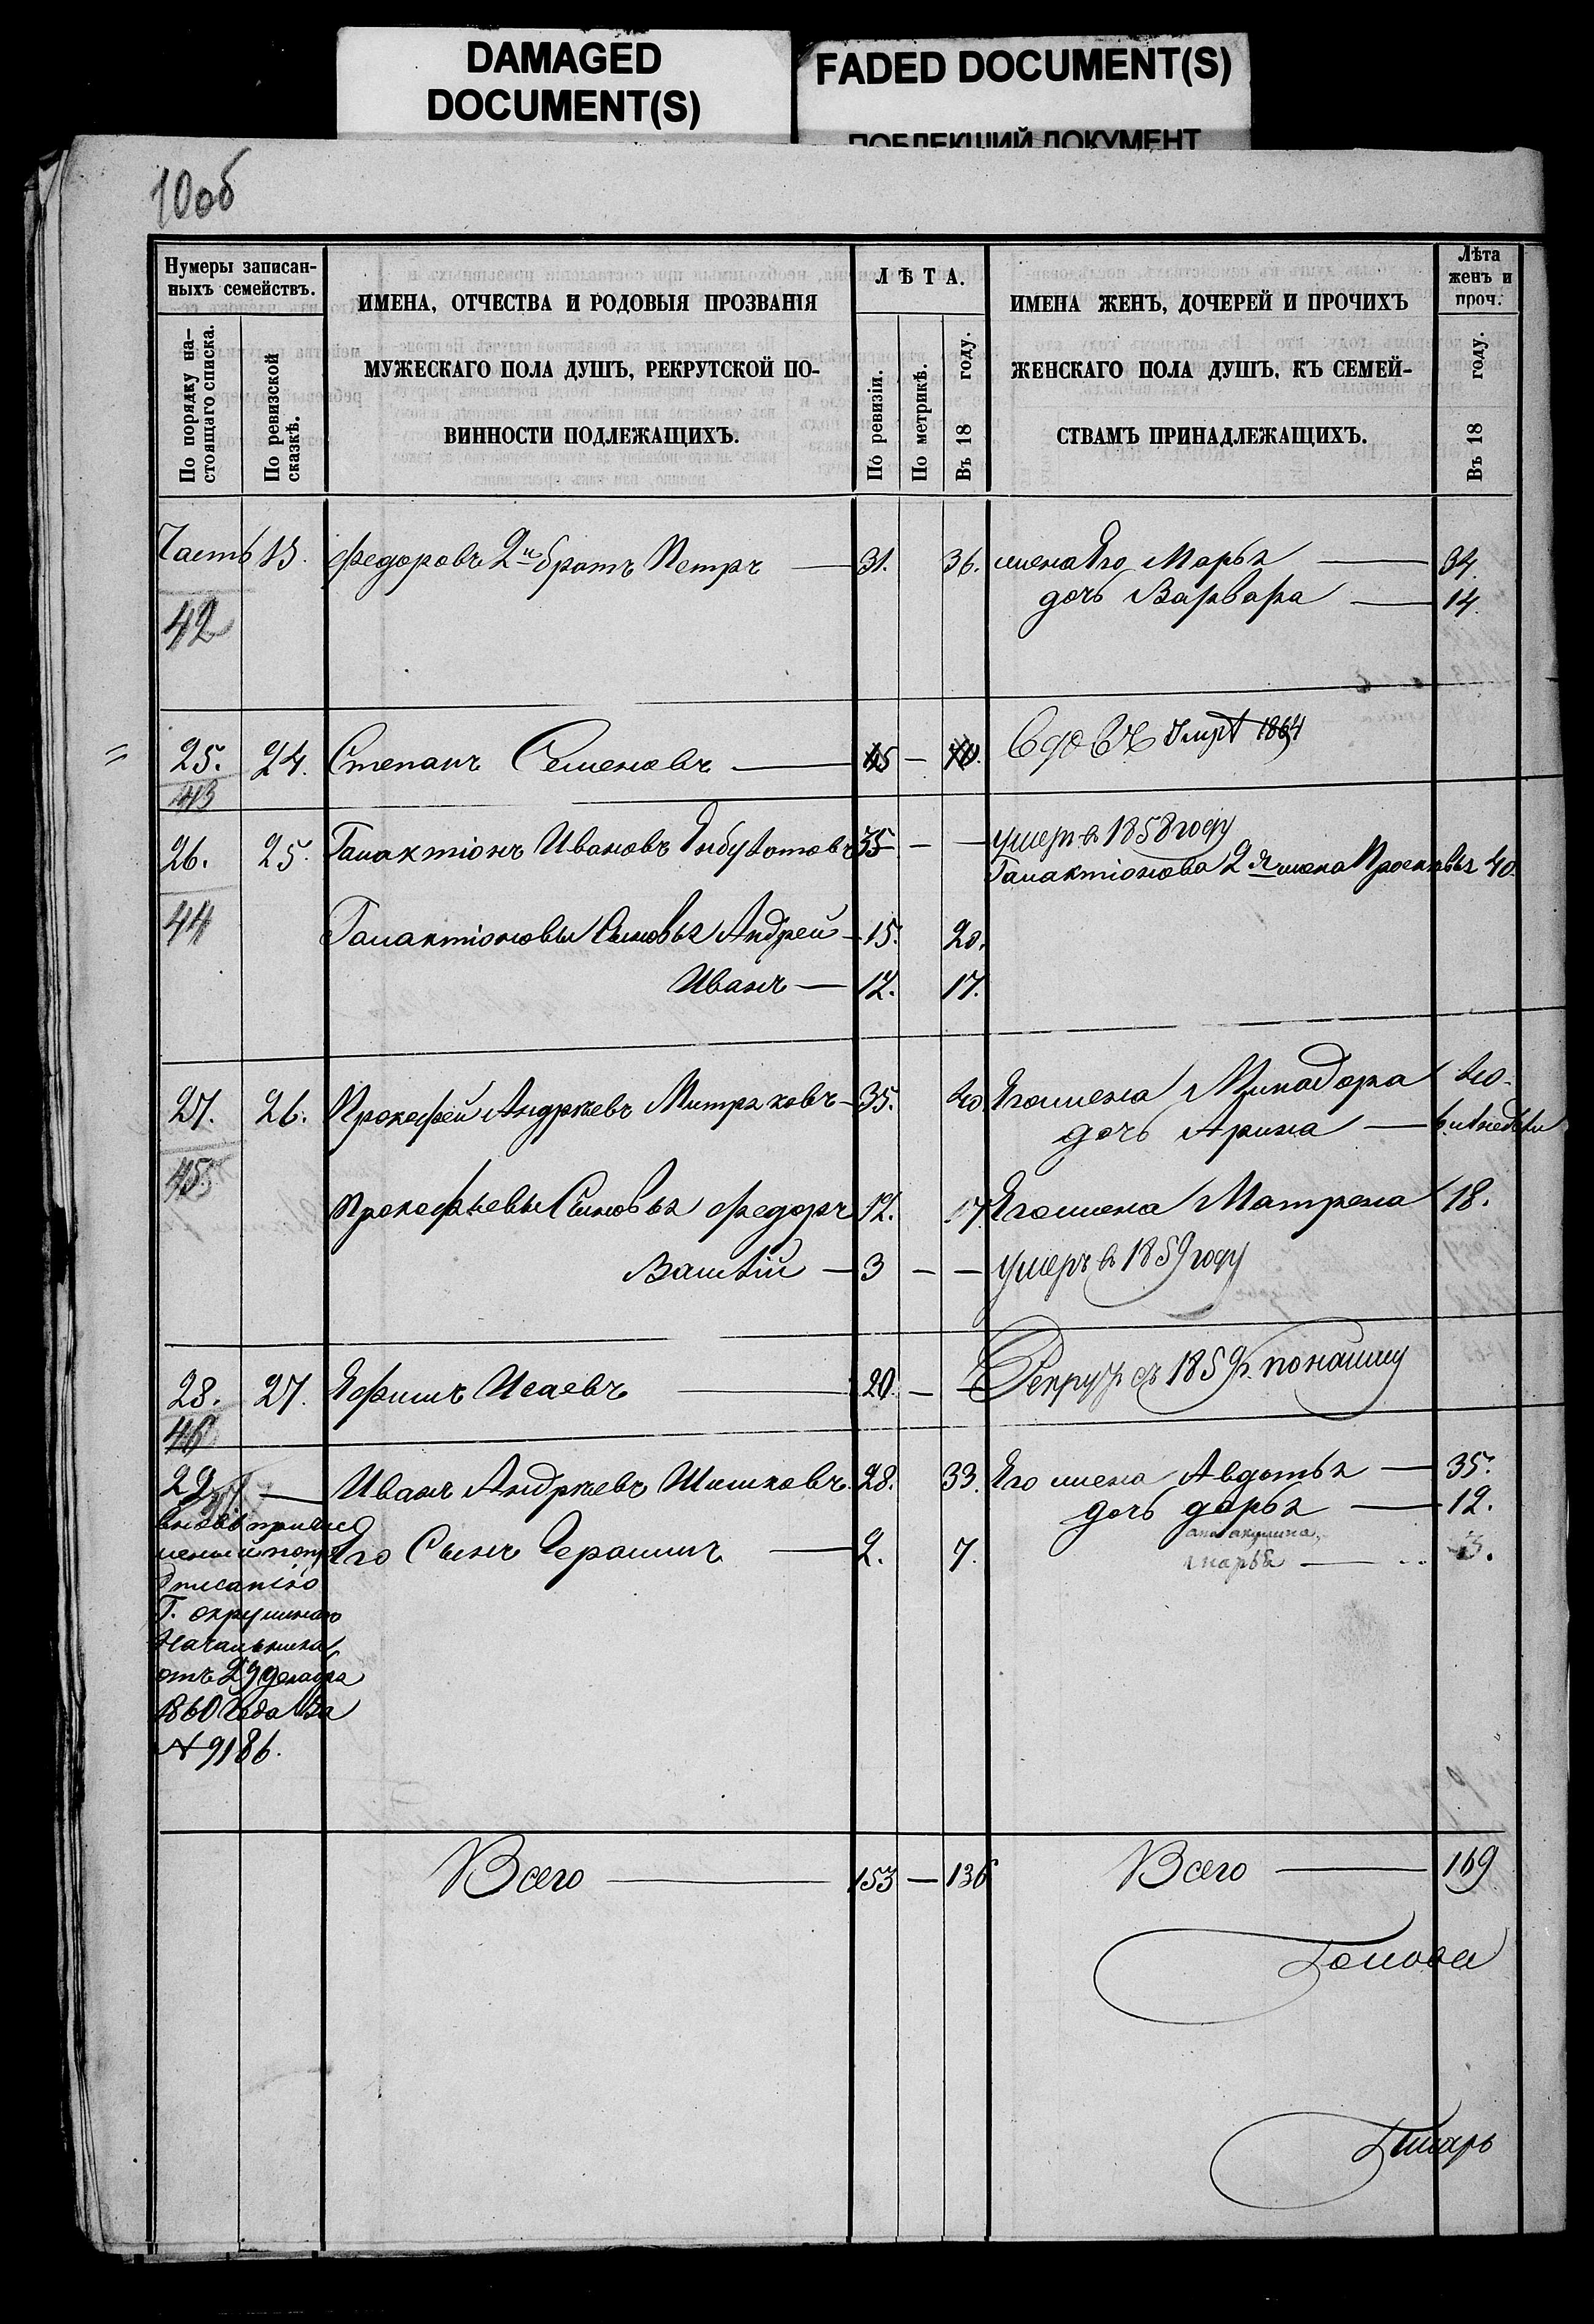 DAMAGED
DOCUMENT(S)
FADED DOCUMENT(S)
ПОБЛЕКШИЙ ДОКУМЕНТ
10об
Нумеры записан-
ныхъ семействъ.
По порядку на-
стоящаго списка.
По ревизской
сказкѣ.
ИМЕНА, ОТЧЕСТВА И РОДОВЫЯ ПРОЗВАНІЯ
МУЖЕСКАГО ПОЛА ДУШЪ, РЕКРУТСКОЙ ПО-
ВИННОСТИ ПОДЛЕЖАЩИХЪ.
ЛѢТА.
По ревизіи.
По метрикѣ.
Въ 18 году.
ИМЕНА ЖЕНЪ, ДОЧЕРЕЙ И ПРОЧИХЪ
ЖЕНСКАГО ПОЛА ДУШЪ, КЪ СЕМЕЙ-
СТВАМЪ ПРИНАДЛЕЖАЩИХЪ.
Лѣта
женъ и
проч.
Въ 18 году.
Федоровъ 2й братъ Петръ 31. 36. жена Его Марья 34.
дочь Варвара 14.
42
25. 24. Степанъ Семеновъ — Вдовъ 1864
43
26. 25. Галактіонъ Ивановъ 35 — — умеръ в 1858 году
Галактіонова 2я жена Просковья 40.
44
Галактіоновы Сыновья Андрей 15. 20.
Иванъ — 12. 17.
27. 26. Прокофей Андреевъ Митряковъ 35. 40 Его жена Минадора 40.
дочь Арина —
45
Прокофьевы Сыновья Федоръ 12. 17. Его жена Матрена 18.
Василій — 3 — — умеръ в 1859 году
28. 27. Ефимъ Исаевъ 20. —
46
29. — Иванъ Андреевъ Шишковъ 28. 33. Его жена Авдотья — 35.
дочь дарья — 12.
вновь причис
Его Сынъ Герасимъ — 2. 7.
марья — 3.
Г. окружнаго
Начальника
отъ 29 декабря
1860 года за
№ 9186.
Всего — 153 — 136 Всего — 169
Голова
Писарь